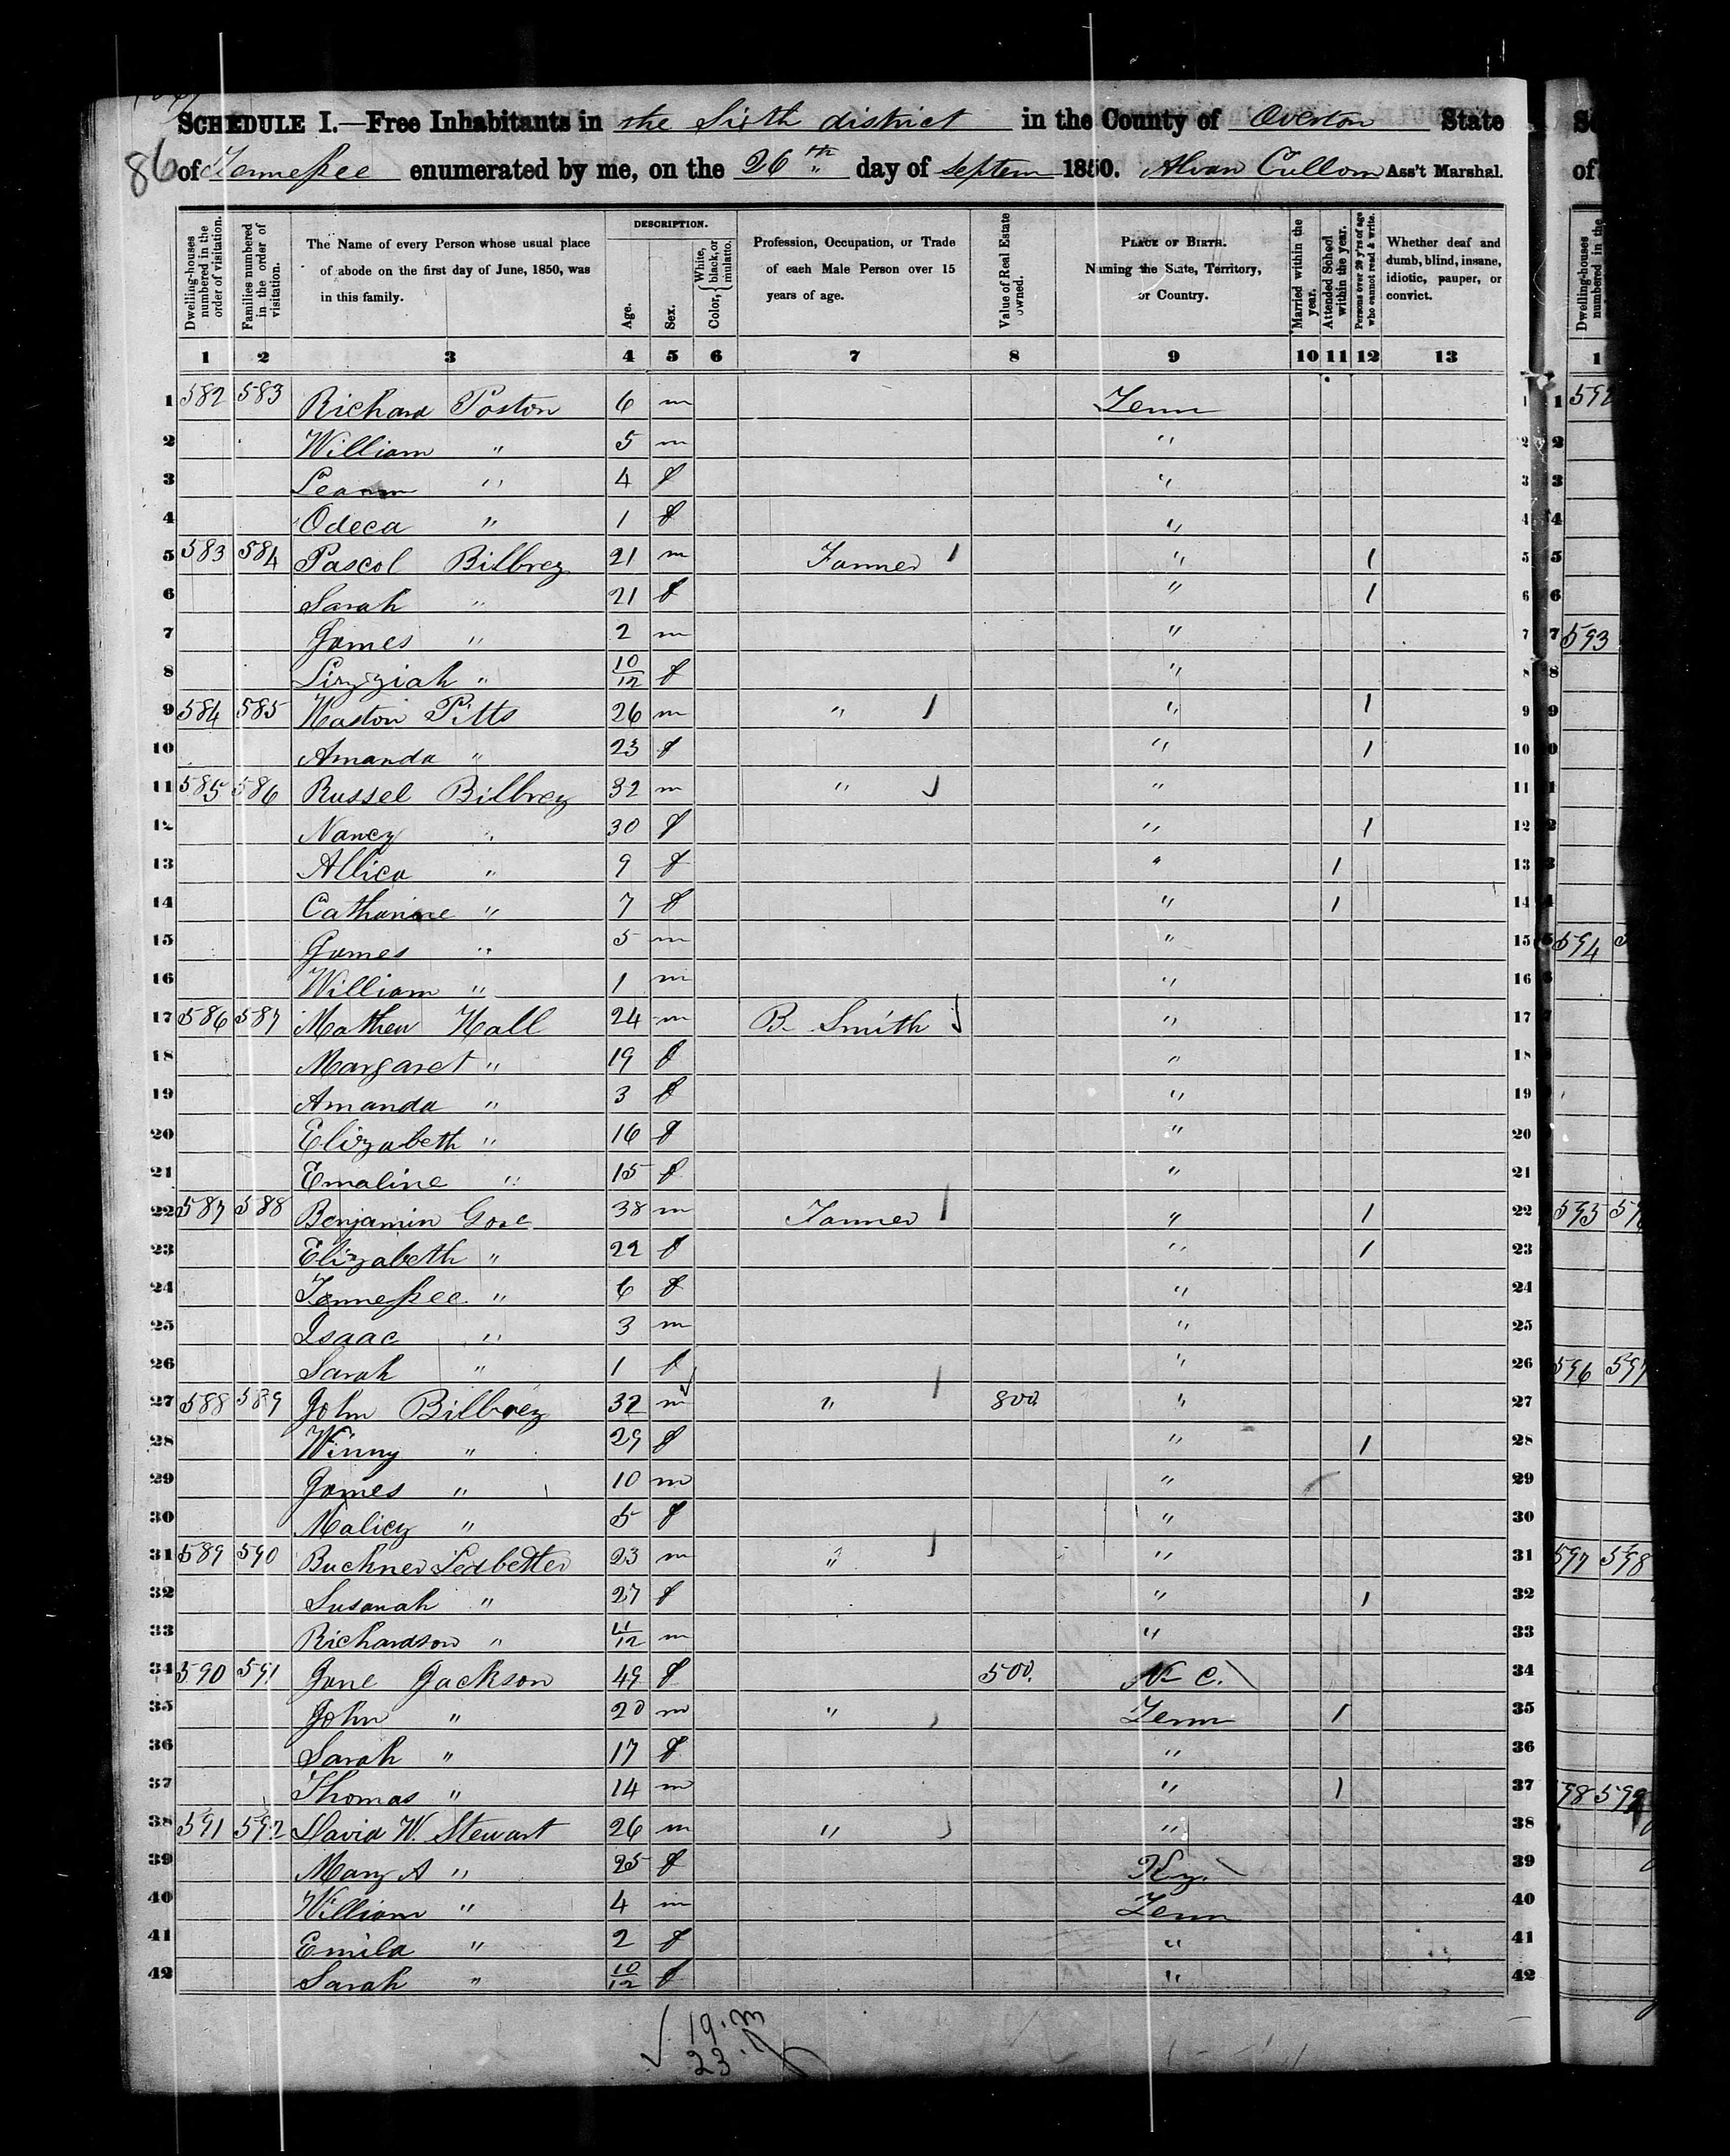 86
SCHEDULE I.—Free Inhabitants in the Sixth district in the County of Overton State
of Tennessee enumerated by me, on the 26th day of Septem 1850. Alvan Cullom Ass't Marshal.
Dwelling-houses numbered in the order of visitation. Families numbered in the order of visitation. The Name of every Person whose usual place of abode on the first day of June, 1850, was in this family. DESCRIPTION. Age. Sex. Color, White, black, or mulatto. Profession, Occupation, or Trade of each Male Person over 15 years of age. Value of Real Estate owned. PLACE OF BIRTH. Naming the State, Territory, or Country. Married within the year. Attended School within the year. Persons over 20 y'rs of age who cannot read & write. Whether deaf and dumb, blind, insane, idiotic, pauper, or convict.
1 2 3 4 5 6 7 8 9 10 11 12 13
1 582 583 Richard Poston 6 m Tenn 1
2 William " 5 m " 2
3 Leann " 4 f " 3
4 Odeca " 1 f " 4
5 583 584 Pascol Bilbrey 21 m Farmer 1 " 1 5
6 Sarah " 21 f " 1 6
7 James " 2 m " 7
8 " 10/12 f " 8
9 584 585 Haston Pitts 26 m " 1 " 1 9
10 Amanda " 23 f " 1 10
11 585 586 Russel Bilbrey 32 m " " 11
12 Nancy " 30 f " 1 12
13 Allica " 9 f " 1 13
14 Catharine " 7 f " 1 14
15 James " 5 m " 15
16 William " 1 m " 16
17 586 587 Mathew Hall 24 m B. Smith " 17
18 Margaret " 19 f " 18
19 Amanda " 3 f " 19
20 Elizabeth " 16 f " 20
21 Emaline " 15 f " 21
22 587 588 Benjamin Gore 38 m Farmer 1 " 1 22
23 Elizabeth " 22 f " 1 23
24 Tennessee " 6 f " 24
25 Isaac " 3 m " 25
26 Sarah " 1 f " 26
27 588 589 John Bilbrey 32 m " 1 800. " 27
28 Winny " 29 f " 1 28
29 James " 10 m " 29
30 Malicy " 5 f " 30
31 589 590 Buckner Ledbetter 23 m " " 31
32 Susanah " 27 f " 1 32
33 Richardson " m " 33
34 590 591 Jane Jackson 49 f 500. N C. 34
35 John " 20 m " Tenn 1 35
36 Sarah " 17 f " 36
37 Thomas " 14 m " 1 37
38 591 592 David W. Stewart 26 m " " 38
39 Mary A " 25 f Ky. 39
40 William " 4 m Tenn 40
41 Emila " 2 f " 41
42 Sarah " 10/12 f " 42
19. m
23. f